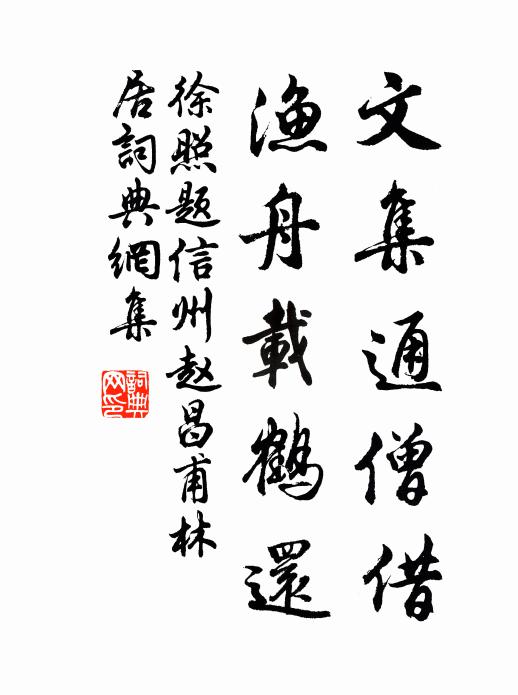 文集通僧借
漁舟載鶴還
徐照题信州赵昌甫林
居詞典網集
詞典
网印